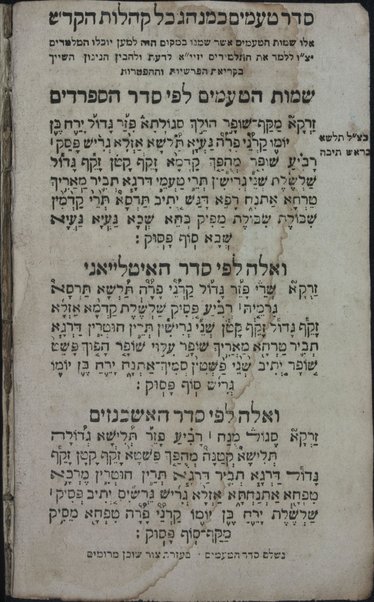 סדר טעמים כמנהג כל קהלות הקדש
אלו שמות הטעמים אשר שמנו במקום הזה למען יוכלו המלמדים
יצ"ו ללמד את התלמידים יזיי"א לדעת ולהבין הניגון השייך
בקריאת הפרשיות וההפטרות
שמות הטעמים לפי סדר הספרדים
זרקא מקף שופר הולך סגולתא פזר גדול ירח בן
יומו קרני פרה געיא תלשא אזלא גריש פסיק׀
רביע שופר מהפך קדמא זקף קטן זקף גדול
שלשלת שני גרישין תרי טעמי דרגא תביר מאריך
טרחא אתנח רפא דגש יתיב תרסא תרי קדמין
שכולת שבולת מפיק בהא שבא געיא געיא
שבא סוף פסוק׃
בצ"ל תלשא
בראש תיבה
ואלה לפי סדר האיטלייאני
זרקא שרי פזר גדול קרני פרה תלשא תרסא
גרמיה׀ רביע פסיק שלשלת קדמא אזלא
זקף גדול זקף קטן שני גרישין תרין חוטרין דרגא
תביר טרחא מאריך שופר עלוי שופר הפוך פשט
שופר יתיב שני פשטין סמיך אתנח ירח בן יומו
גריש סוף פסוק׃
ואלה לפי סדר האשכנזים
זרקא סגול מנח׀ רביע פזר תלישא גדולה
תלישא קטנה מהפך פשטא זקף קטן זקף
גדול דרגא תביר דרגא תרין חוטרין מרכא
טפחא אתנחתא אזלא גריש גרשים יתיב פסיק׀
שלשלת ירח בן יומו קרני פרה טפחא מסיק
מקף סוף פסוק׃
נשלם סדר הטעמים · בעזרת צור שוכן מרומים